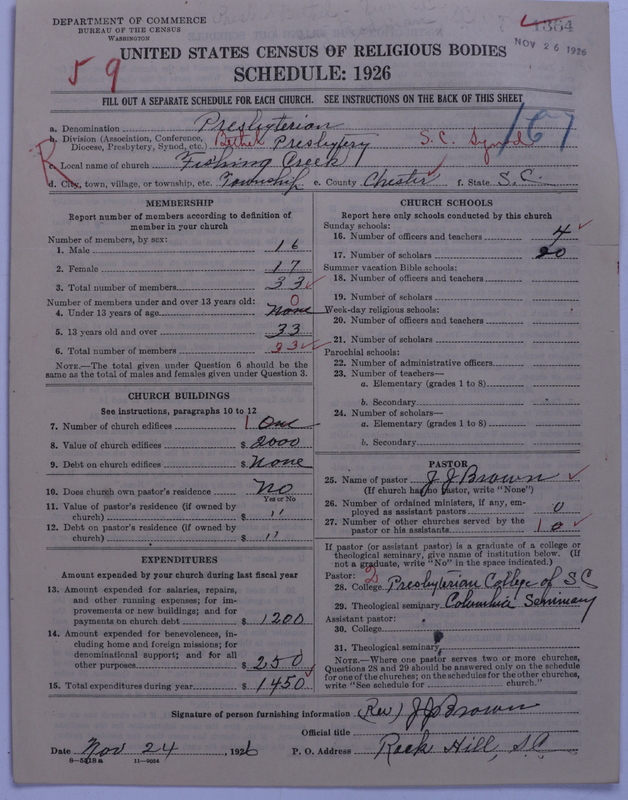 DEPARTMENT OF COMMERCE
BUREAU OF THE CENSUS
WASHINGTON
1364
NOV 26 1926
UNITED STATES CENSUS OF RELIGIOUS BODIES
SCHEDULE: 1926
59
FILL OUT A SEPARATE SCHEDULE FOR EACH CHURCH. SEE INSTRUCTIONS ON THE BACK OF THIS SHEET
167
R
a. Denomination Presbyterian
b. Division (Association, Conference, Diocese, Presbytery, Synod, etc.) Bethel Presbytery S.C. Synod
c. Local name of church Fishing Creek
d. City, town, village, or township, etc. Township e. County Chester f. State S.C.
MEMBERSHIP
Report number of members according to definition of
member in your church
Number of members, by sex:
1. Male 16
2. Female 17
3. Total number of members 33
Number of members under and over 13 years old: 0
4. Under 13 years of age None
5. 13 years old and over 33
6. Total number of members 33
NOTE.—The total given under Question 6 should be
same as the total of males and females given under Question 3.
CHURCH BUILDINGS
See instructions, paragraphs 10 to 12
7. Number of church edifices 1 One
8. Value of church edifices $ 2000
9. Debt on church edifices $ None
10. Does church own pastor's residence No
Yes or No
11. Value of pastor's residence (if owned by
church) $ "
12. Debt on pastor's residence (if owned by
church) $ "
EXPENDITURES
Amount expended by your church during last fiscal year
13. Amount expended for salaries, repairs,
and other running expenses; for im-
provements or new buildings; and for
payments on church debt $ 1200
14. Amount expended for benevolences, in-
cluding home and foreign missions; for
denominational support; and for all
other purposes $ 250
15. Total expenditures during year $ 1450
CHURCH SCHOOLS
Report here only schools conducted by this church
Sunday schools:
16. Number of officers and teachers 4
17. Number of scholars 20
Summer vacation Bible schools:
18. Number of officers and teachers
19. Number of scholars
Week-day religious schools:
20. Number of officers and teachers
21. Number of scholars
Parochial schools:
22. Number of administrative officers
23. Number of teachers—
a. Elementary (grades 1 to 8)
b. Secondary
24. Number of scholars—
a. Elementary (grades 1 to 8)
b. Secondary
PASTOR
25. Name of pastor J J Brown
(If church has no pastor, write "None")
26. Number of ordained ministers, if any, em-
ployed as assistant pastors 0
27. Number of other churches served by the
pastor or his assistants 1 0
If pastor (or assistant pastor) is a graduate of a college or
theological seminary, give name of institution below. (If
not a graduate, write "No" in the space indicated.)
Pastor: 2
28. College Presbyterian College of SC
29. Theological seminary Columbia Seminary
Assistant pastor:
30. College
31. Theological seminary
NOTE.—Where one pastor serves two or more churches,
Questions 28 and 29 should be answered only on the schedule
for one of the churches; on the schedules for the other churches,
write "See schedule for ............ church."
Signature of person furnishing information (Rev) J J Brown
Official title
Date Nov 24 1926 P. O. Address Rock Hill, SC
8-5318a 11-9024